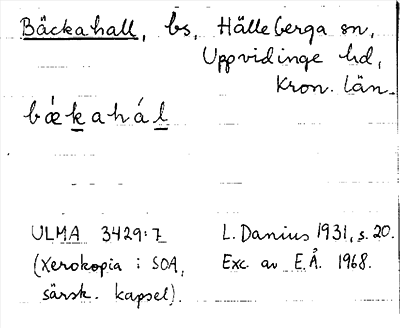 Bäckahall, bs, Hälleberga sn,
Uppvidinge hd,
Kron. län.
bǽkahál
ULMA 3429:7 L. Danius 1931, s. 20.
(Xerokopia i SOA, Exc. av E.Å. 1968.
särsk. kapsel).